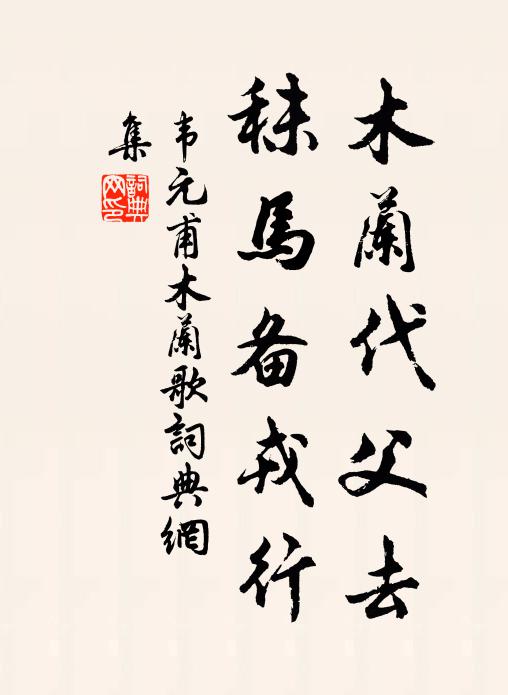 木蘭代父去
秣馬备戎行
韦元甫木蘭歌詞典網
集
詞典网印